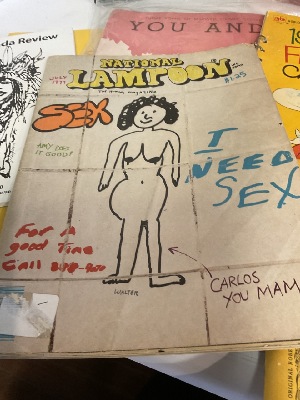 da Review
YOU AND
JULY 1977
NATIONAL
LAMPOON
THE HUMOR MAGAZINE
$1.25
SEX
AMY DOES
IT GOOD!
I
NEED
SEX
For A
good Time
Call
CARLOS
YOU MAM
WALTER